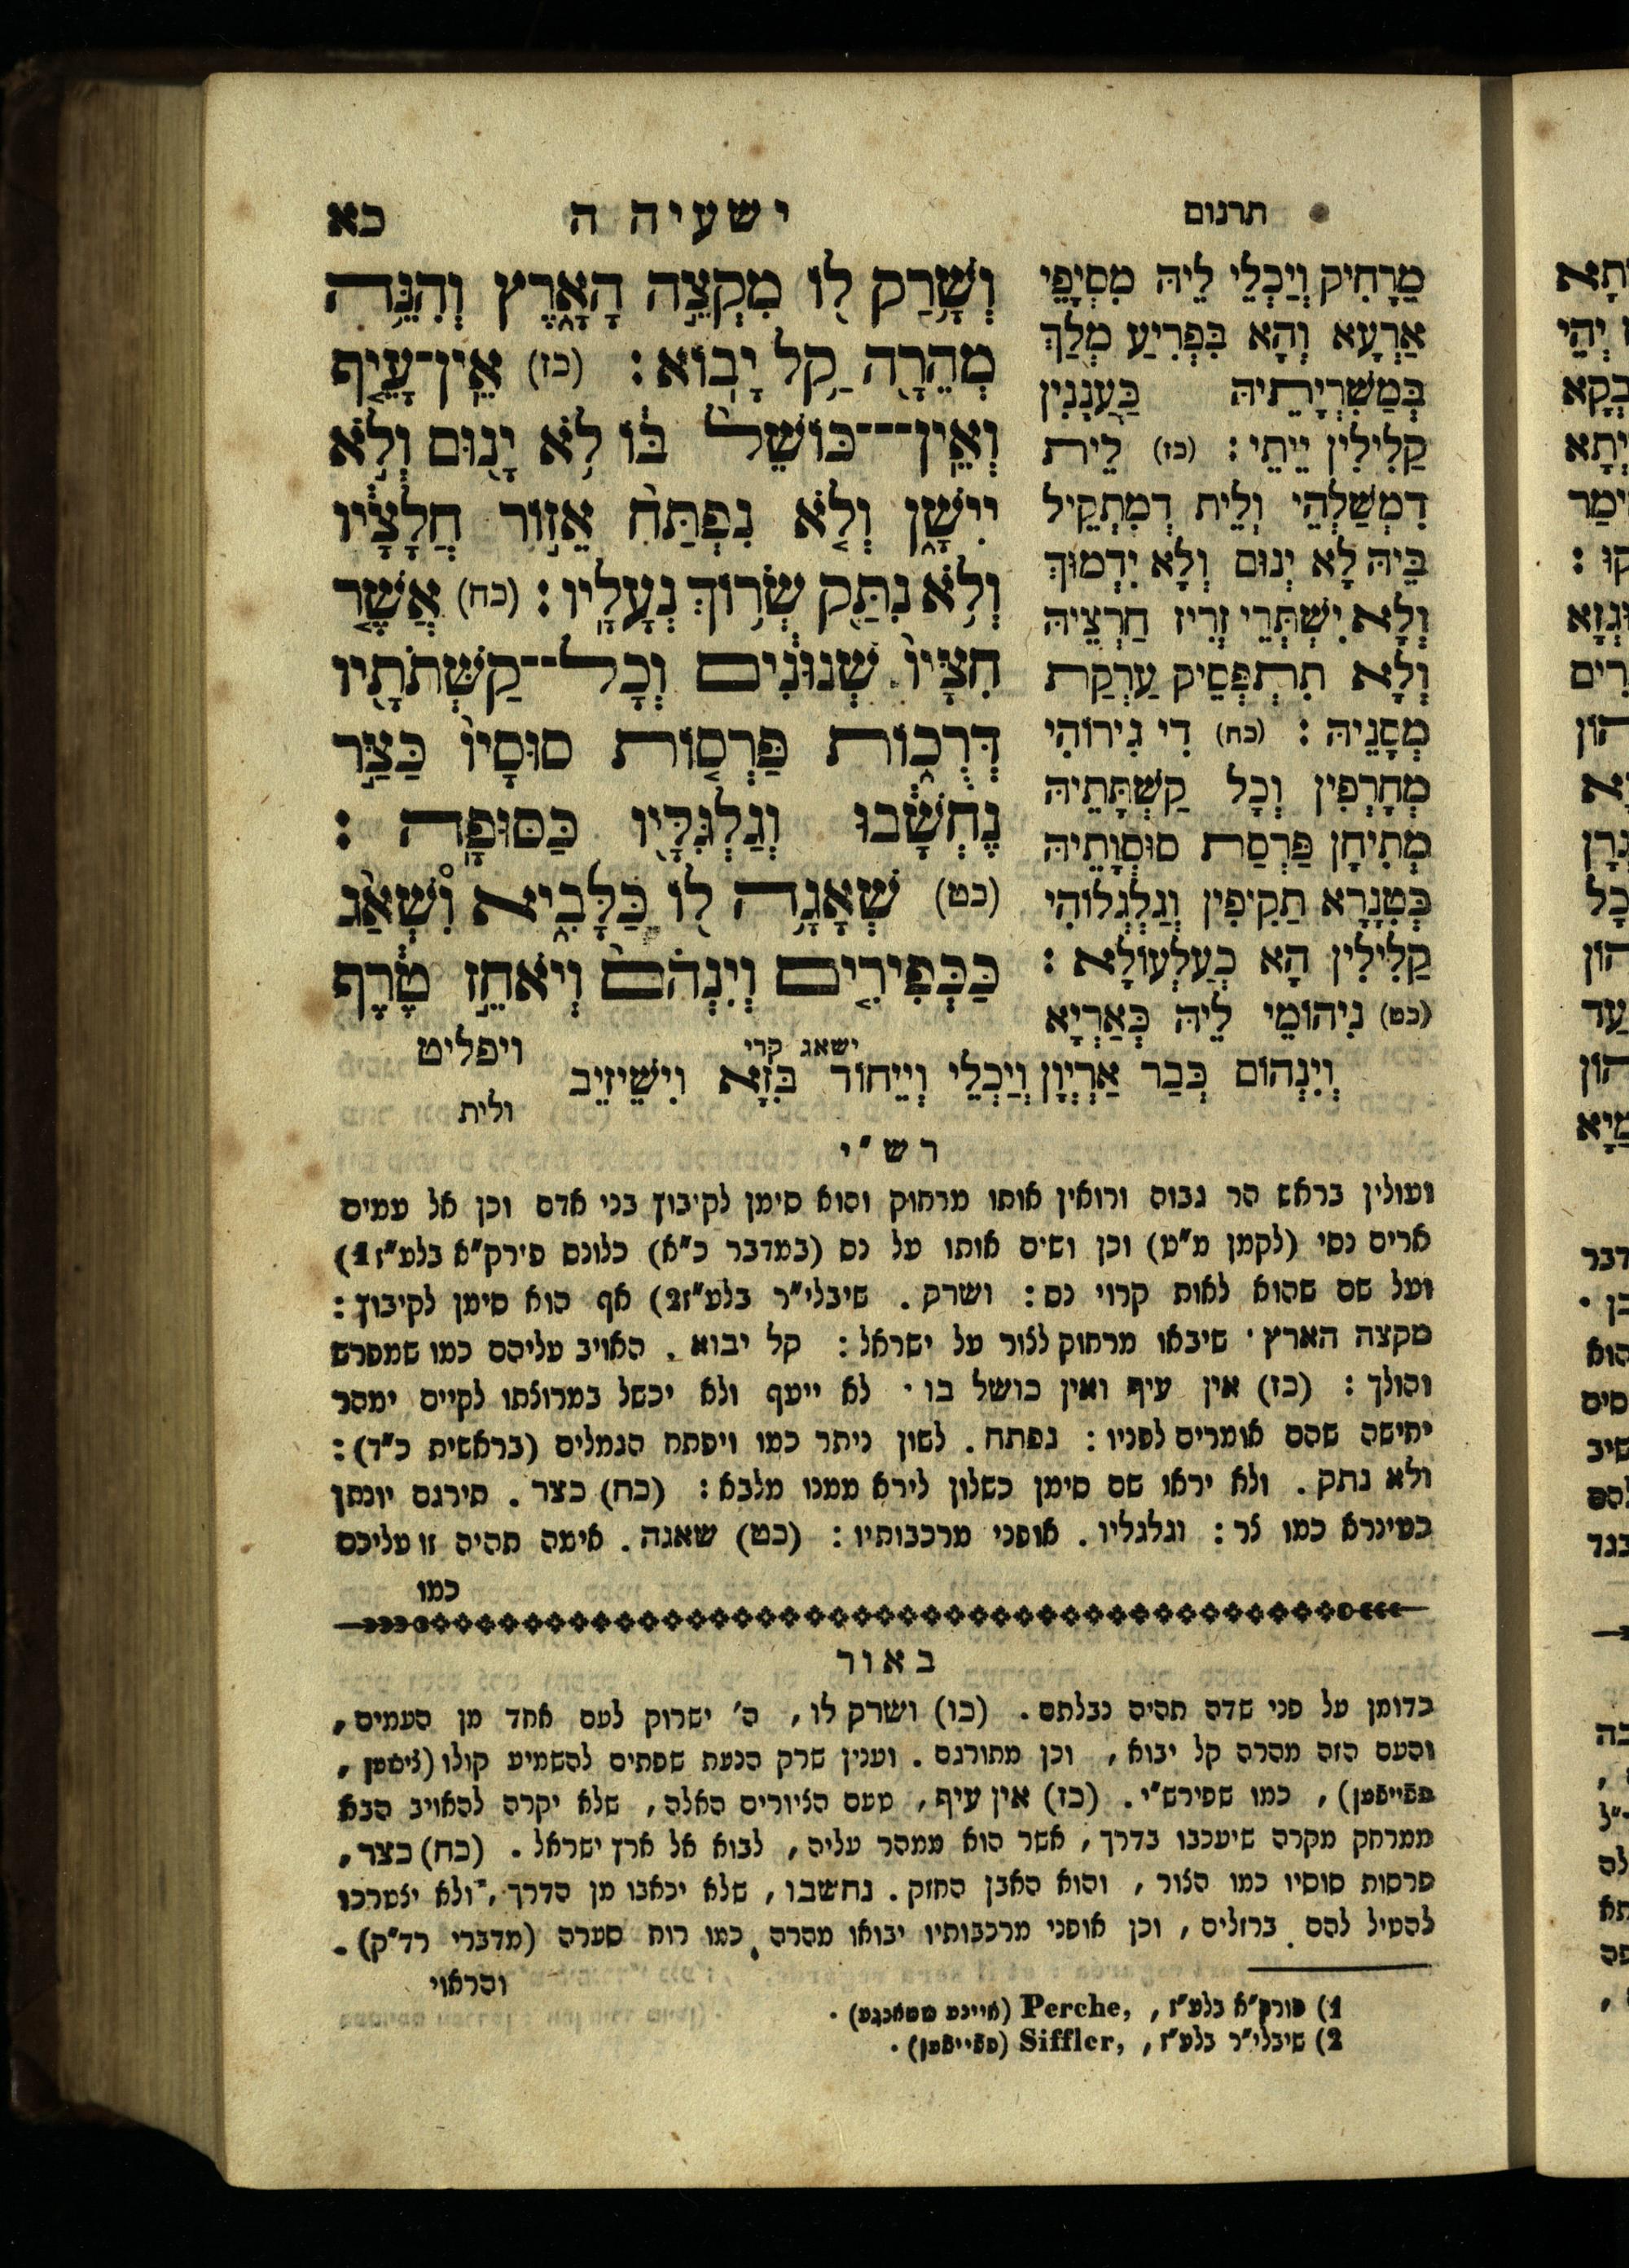 תרגום
ישעיה ה
כא
וְשָׁ֥רַק ל֖וֹ מִקְצֵ֣ה הָאָ֑רֶץ וְהִנֵּ֥ה
מְהֵרָ֖ה קַ֥ל יָבֽוֹא׃ (כז) אֵֽין־עָיֵ֤ף
וְאֵֽין־כּוֹשֵׁל֙ בּ֔וֹ לֹ֥א יָנ֖וּם וְלֹ֣א
יִישָׁ֑ן וְלֹ֤א נִפְתַּח֙ אֵז֣וֹר חֲלָצָ֔יו
וְלֹ֥א נִתַּ֖ק שְׂר֥וֹךְ נְעָלָֽיו׃ (כח) אֲשֶׁ֤ר
חִצָּיו֙ שְׁנוּנִ֔ים וְכָל־קַשְּׁתֹתָ֖יו
דְּרֻכ֑וֹת פַּרְס֤וֹת סוּסָיו֙ כַּצַּ֣ר
נֶחְשָׁ֔בוּ וְגַלְגִּלָּ֖יו כַּסּוּפָֽה׃
(כט) שְׁאָגָ֥ה ל֖וֹ כַּלָּבִ֑יא וְ֯שָׁאַ֨ג
כַּכְּפִירִ֤ים וְיִנְהֹם֙ וְיֹאחֵ֣ז טֶ֔רֶף
ישאג קרי
ויפליט
מֵרָחִיק וְיַכְלֵי לֵיהּ מִסְיָפֵי
אַרְעָא וְהָא בִּפְרִיעַ מְלַךְ
בְּמַשִׁרְיָתֵיהּ כַּעֲנָנִין
קַלִילִין יֵיתֵי׃ (כז) לֵית
דִמְשַׁלְהֵי וְלֵית דְמִתְקֵיל
בֵּיהּ לָא יְנוּם וְלָא יִדְמוּךְ
וְלָא יִשְׁתְּרֵי זְרֵיז חַרְצֵיהּ
וְלָא תִתְפְּסֵיק עַרְקַת
מְסָנֵיהּ׃ (כח) דִי גִירוֹהִי
מְחָרְפִין וְכָל קַשְׁתָּתֵיהּ
מְתִיחָן פַּרְסַת סוּסְוָתֵיהּ
כְּטִנָרָא תַקִיפִין וְגַלְגְלוֹהִי
קַלִילִין הָא כְעַלְעוּלָא׃
(כט) נִיהוֹמֵי לֵיהּ כְּאַרְיָא
וְיִנְהוֹם כְּבַר אַרְיְוָן וְיַכְלֵי וְיֵיחוֹד בִּזָא וִישֵׁיזֵיב
ולית
רש״י
ועולין בראש הר גבוה ורואין אותו מרחוק והוא סימן לקיבוץ בני אדם וכן אל עמים
ארים נסי (לקמן מ״ט) וכן ושים אותו על נס (במדבר כ״א) כלונס פירק״א בלע״ז 1)
ועל שם שהוא לאות קרוי נס׃ ושרק. שיבלי״ר בלע״ז 2) אף הוא סימן לקיבוץ׃
מקצה הארץ· שיבאו מרחוק לצור על ישראל׃ קל יבוא. האויב עליהם כמו שמפרש
והולך׃ (כז) אין עיף ואין כושל בו· לא ייעף ולא יכשל במרוצתו לקיים ימהר
יחישה שהם אומרים לפניו׃ נפתח. לשון ניתר כמו ויפתח הגמלים (בראשית כ״ד)׃
ולא נתק. ולא יראו שם סימן כשלון לירא ממנו מלבא׃ (כח) כצר. תירגם יונתן
כטינרא כמו צר׃ וגלגליו. אופני מרכבותיו׃ (כט) שאגה. אימה תהיה זו עליכם
כמו
באור
כדומן על פני שדה תהיה נבלתם. (כו) ושרק לו, ה׳ ישרוק לעם אחד מן העמים,
והעם הזה מהרה קל יבוא, וכן מתורגם. וענין שרק הנעת שפתים להשמיע קולו (ציטען,
פפייפען), כמו שפירש״י. (כז) אין עיף, טעם הציורים האלה, שלא יקרה להאויב הבא
ממרחק מקרה שיעכבו בדרך, אשר הוא ממהר עליה, לבוא אל ארץ ישראל. (כח) כצר,
פרסות סוסיו כמו הצור, והוא האבן החזק. נחשבו, שלא יכאבו מן הדרך, ולא יצטרכו
להטיל להם ברזלים, וכן אופני מרכבותיו יבואו מהרה כמו רוח סערה (מדברי רד״ק).
והראוי
1) פורק״א בלע״ז, Perche, (איינע שטאנגע).
2) שיבלי״ר בלע״ז, Siffler, (פפייפען).